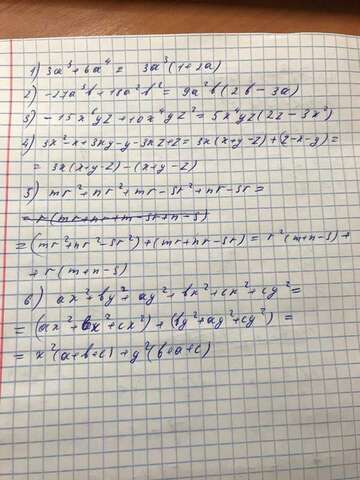 1) 3a³+6a⁴ = 3a³(1+2a)
2) -27a³b+18a²b² = 9a²b(2b-3a)
3) -15x⁶yz+10x⁴yz² = 5x⁴yz(2z-3x²)
4) 3x²-x+3xy-y-3xz+z = 3x(x+y-z)+(z-x-y) =
= 3x(x+y-z)-(x+y-z)
5) mr²+nr²+mr-sr²+nr-sr =
= r(mr+nr+m-sr+n-s)
= (mr²+nr²-sr²)+(mr+nr-sr) = r²(m+n-s)+
+r(m+n-s)
6) ax²+by²+ay²+bx²+cx²+cy² =
= (ax²+bx²+cx²)+(by²+ay²+cy²) =
= x²(a+b+c)+y²(b+a+c)